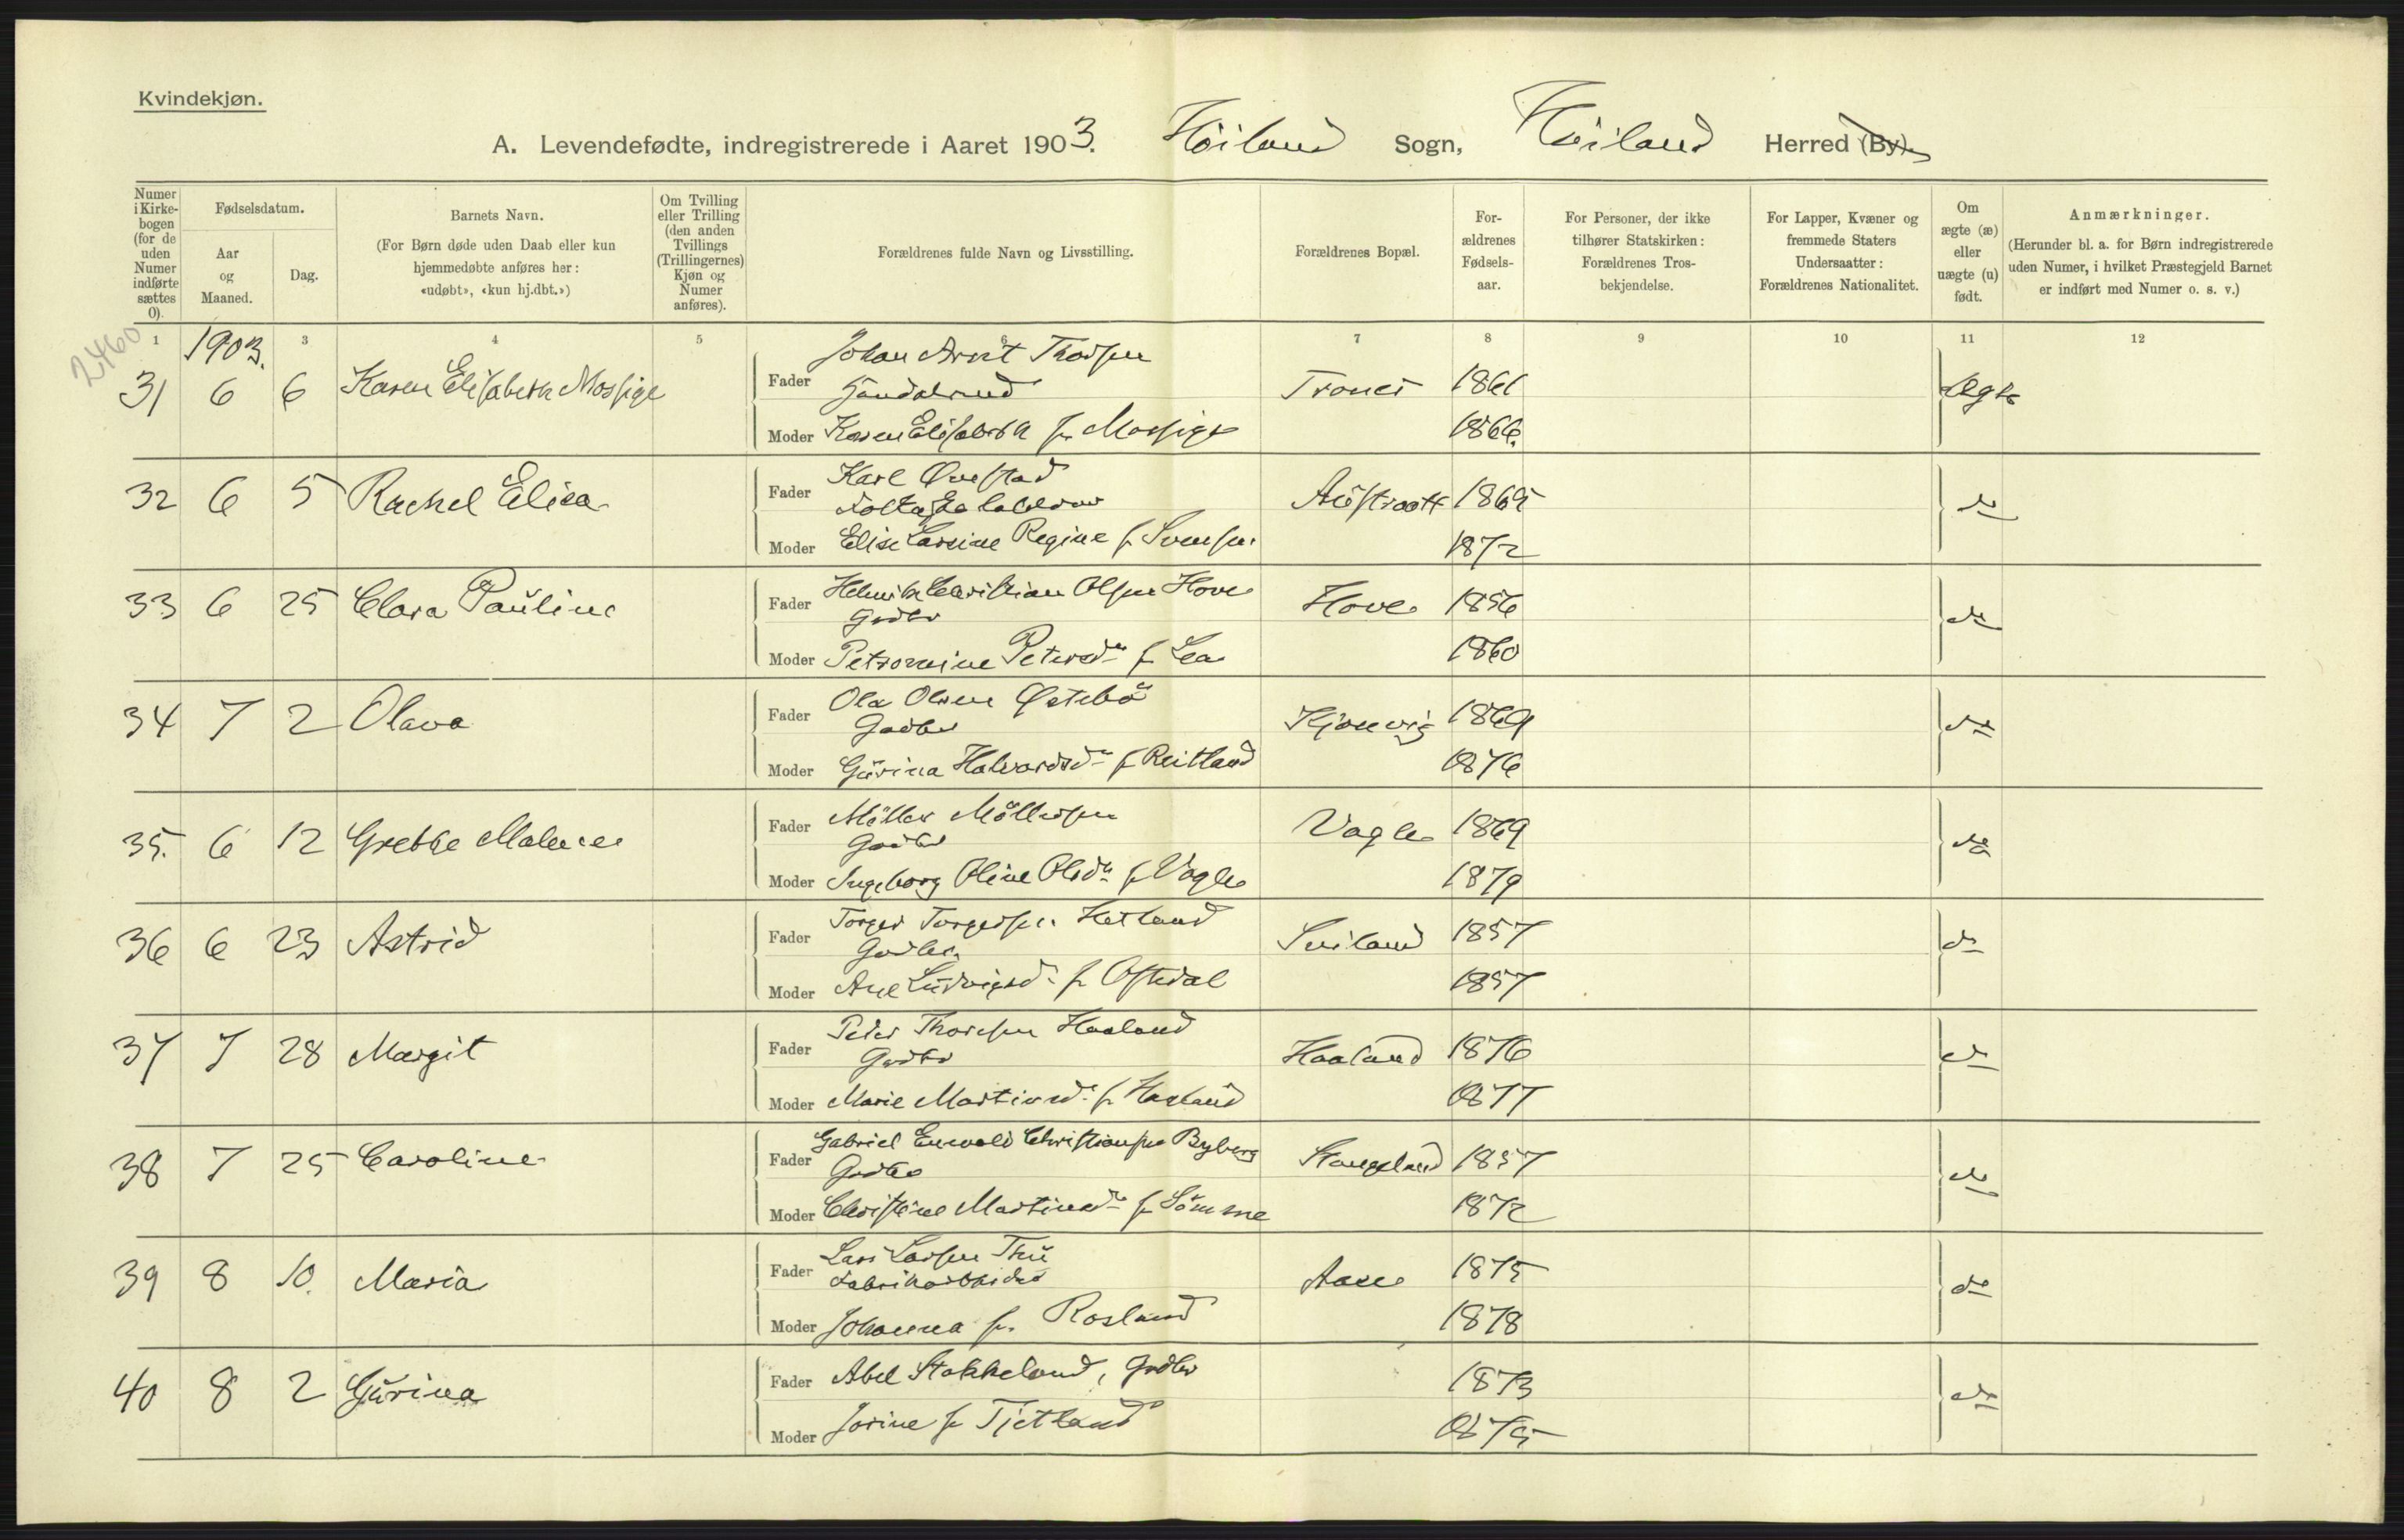 Kvindekjøn.
A. Levendefødte, indregistrerede i Aaret 1903. Höiland Sogn, Höiland Herred (By).
Numer i Kirke-bogen (for de uden Numer indførte sættes 0).
Fødselsdatum.
Aar og Maaned.
Dag.
Barnets Navn.
(For Børn døde uden Daab eller kun hjemmedøbte anføres her: «udøbt», «kun hj.dbt.»)
Om Tvilling eller Trilling (den anden Tvillings (Trillingernes) Kjøn og Numer anføres).
Forældrenes fulde Navn og Livsstilling.
Forældrenes Bopæl.
For-ældrenes Fødsels-aar.
For Personer, der ikke tilhører Statskirken: Forældrenes Tros-bekjendelse.
For Lapper, Kvæner og fremmede Staters Undersaatter: Forældrenes Nationalitet.
Om ægte (æ) eller uægte (u) født.
Anmærkninger.
(Herunder bl. a. for Børn indregistrerede uden Numer, i hvilket Præstegjeld Barnet er indført med Numer o. s. v.)
1 3 4 5 6 7 8 9 10 11 12
2460
1903.
31 6 6 Karen Elisabeth Mossige
Fader Johan Arnt Thorsen
Trones 1861 Ægte
Moder Karen Elisabeth f. Mossige 1866.
32 6 5 Rachel Elisa
Fader Karl Questad
Austraatt 1865 do
Moder Elise Larsine Regine f. Svensen 1872
33 6 25 Clara Pauline
Fader Helmik Christian Olsen Hove
Gadbr
Hove 1856 do
Moder Petromine Petersdr f. Lea 1860
34 7 2 Olava
Fader Ola Olsen Østebö
Gadbr
Kjonvig 1869 do
Moder Gürina Halvardsdr f. Reitland 1876
35. 6 12 Grethe Malene
Fader Möller Möllersen
Gadbr
Vagle 1869 do
Moder Ingeborg Oline Olsdr f. Vagle 1879
36 6 23 Astrid
Fader Torger Torgersen Hetland
Gadbr.
Sviland 1857 do
Moder Ane Ludvigsd. f. Oftedal 1857
37 7 28 Margit
Fader Peder Thorsen Haaland
Gadbr
Haaland 1876 do
Moder Marie Martinsd. f. Haaland 1877
38 7 25 Caroline
Fader Gabriel Enevald Christiansen Byberg
Gadbr
Stangeland 1857 do
Moder Christine Martinsdr f. Sömme 1872
39 8 10. Maria
Fader Lars Larsen Thu
Fabrikarbeider
Aase 1875 do
Moder Johanna f. Rosland 1878
40 8 2 Gürina
Fader Abel Stokkeland, Gadbr 1873 do
Moder Jorine f. Tjetland 1875